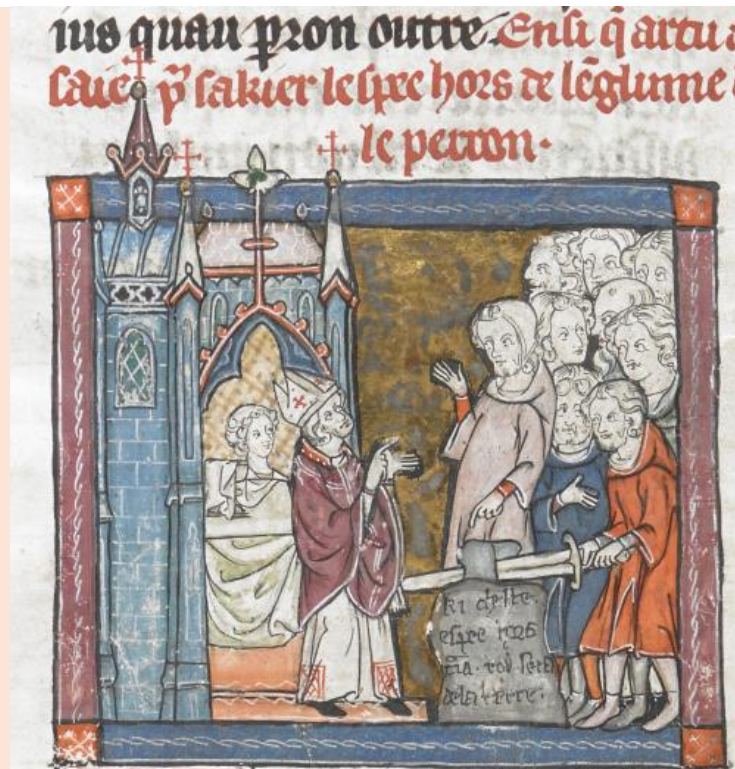 ius quau pron outre. Ensi q̃ artu a
saie pͬ sakier lespee hors de lẽglume
le perron.
ki ceste
espee
rois sera
de la terre.